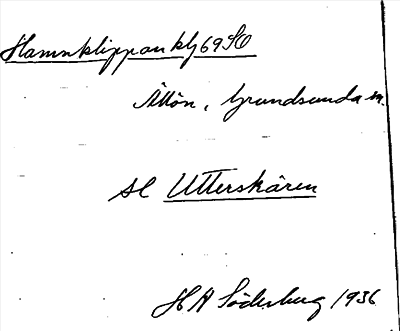 Hamnklippan klj 69 SO
Åttön, Grundsunda sn.
se Utterskären
H A Söderberg 1936